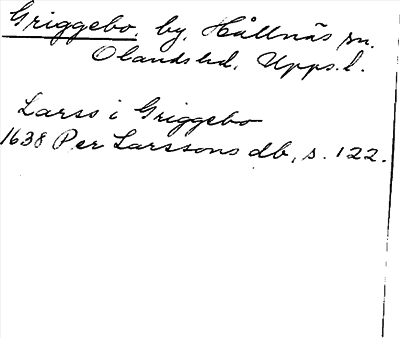 Griggebo, by, Hållnäs sn.
Olands hd, Upps. l.
Larss i Griggebo
1638 Per Larssons db, s. 122.